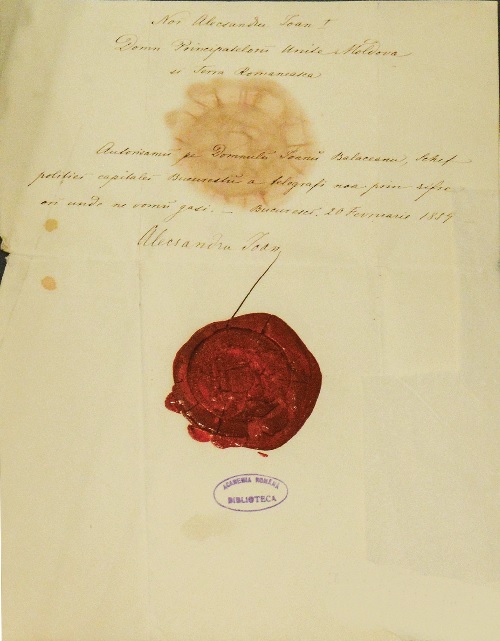 Noi Alecsandru Ioan I
Domn Principatelorŭ Unite Moldova
si Terra Romaneasca
Autorisamŭ pe Domnulu Ioanŭ Balaceanu, Schef
politiei capitalei Bucurestiĭ a telegrafi noa prin sifre
ori unde ne vomŭ gasi. — Bucuresci, 20 Fevruarie 1859
Alecsandru Ioan
ACADEMIA ROMÂNĂ
BIBLIOTECA